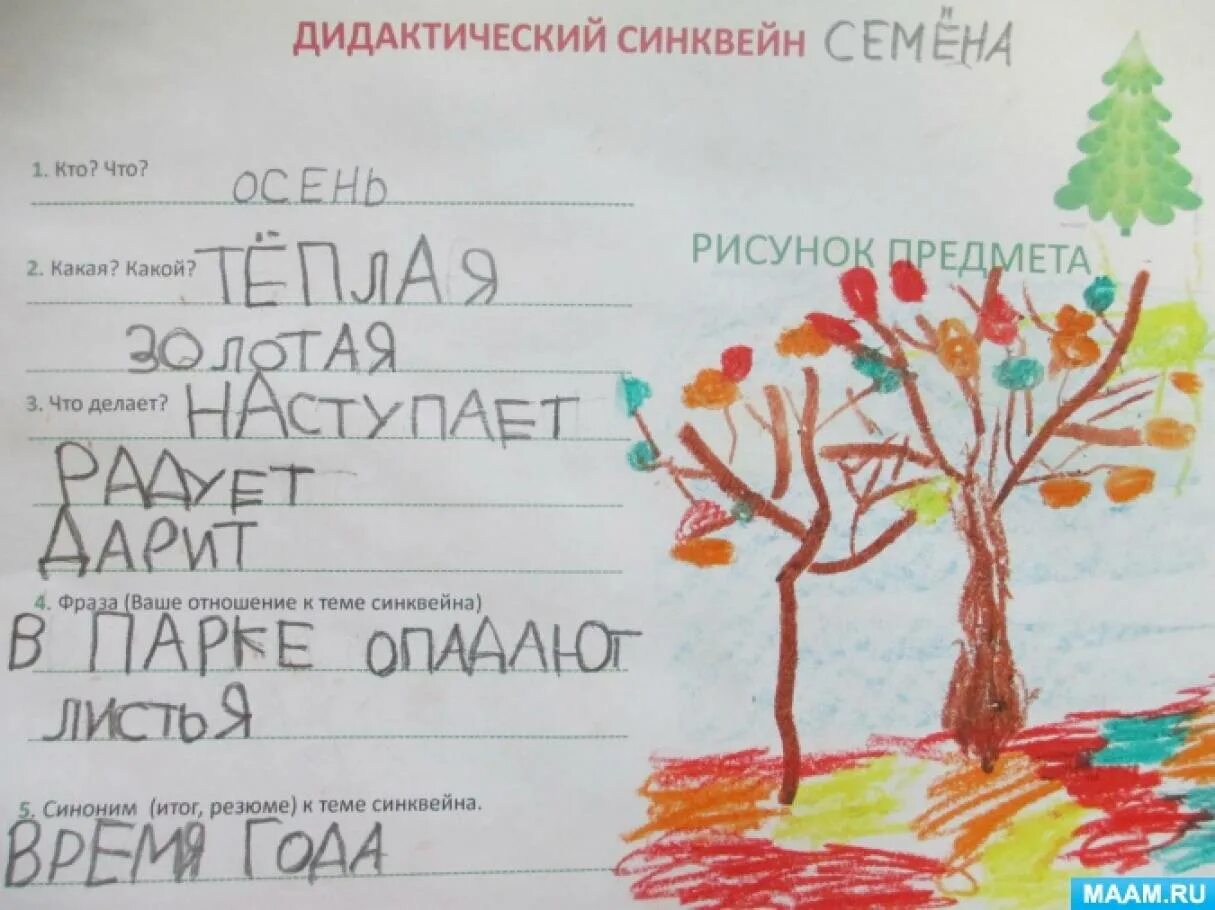 ДИДАКТИЧЕСКИЙ СИНКВЕЙН СЕМЁНА
1. Кто? Что? ОСЕНЬ
2. Какая? Какой? ТЁПЛАЯ
ЗОЛОТАЯ
3. Что делает? НАСТУПАЕТ
РАДУЕТ
ДАРИТ
4. Фраза (Ваше отношение к теме синквейна)
В ПАРКЕ ОПАДАЮТ
ЛИСТЬЯ
5. Синоним (итог, резюме) к теме синквейна.
ВРЕМЯ ГОДА
РИСУНОК ПРЕДМЕТА
MAAM.RU